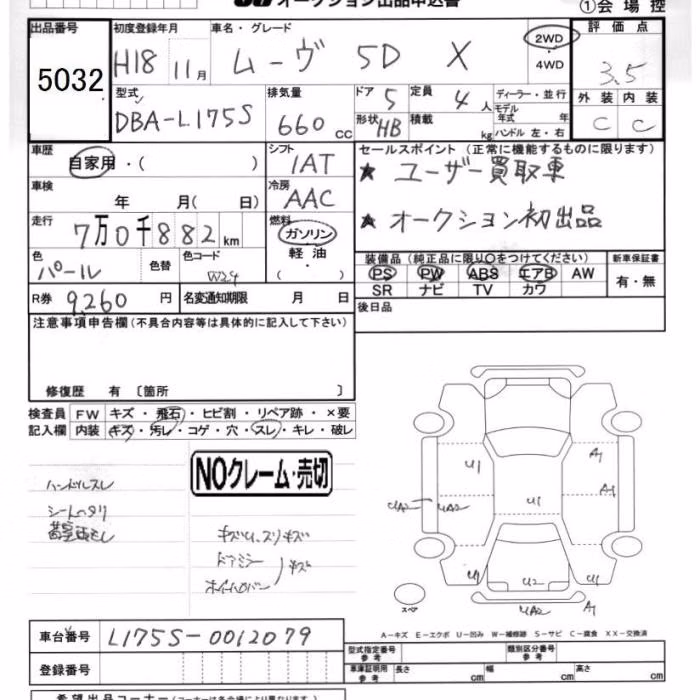 オークション出品申込書
①会場控
出品番号
5032
初度登録年月
H18 11月
車名・グレード
ムーヴ 5D X
2WD
4WD
評価点
3.5
型式
DBA-L175S
排気量
660 cc
ドア 5
形状 HB
定員 4 人
積載 kg
ディーラー・並行
モデル年式 年
ハンドル 左・右
外装 内装
C C
車歴
自家用・( )
シフト
IAT
セールスポイント (正常に機能するものに限ります)
★ ユーザー買取車
★ オークション初出品
車検
年 月( 日)
冷房
AAC
走行
7万0千882km
燃料
ガソリン
軽油
( )
色
パール
色替
色コード
W24
装備品(純正品に限り○をつけてください)
PS PW ABS エアB AW
SR ナビ TV カワ
新車保証書
有・無
R券 9,260 円
名変通知期限 月 日
後日品
注意事項申告欄(不具合内容等は具体的に記入して下さい)
修復歴 有〔箇所 〕
検査員
記入欄
FW キズ・飛石・ヒビ割・リペア跡・×要
内装 キズ・汚レ・コゲ・穴・スレ・キレ・破レ
ハンドルスレ
シートヘタリ
NOクレーム・売切
ドアミラー
キズ
U1
A1
A1
UA2
UA2
U1
U1
U2
U1
UA2
A1
スペア
A-キズ E-エクボ U-凹み W-補修跡 S-サビ C-腐食 XX-交換済
車台番号
L175S-0012079
登録番号
型式指定番号
参考
類別区分番号
参考
車庫証明用
参考
長さ cm
幅 cm
高さ cm
希望出品コーナー